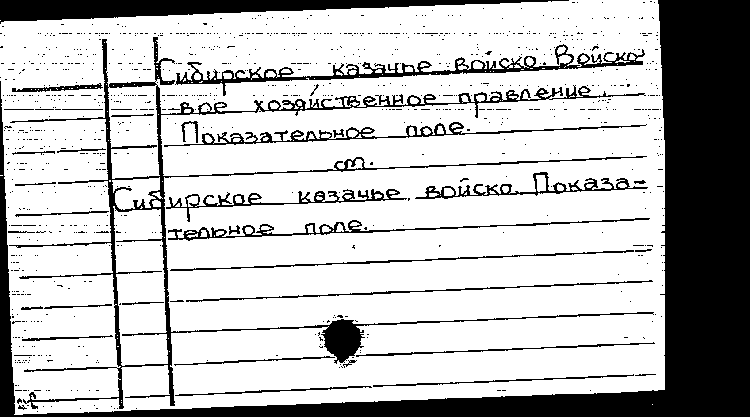 Сибирское казачье войско. Войско-
вое хозяйственное правление.
Показательное поле.
см.
Сибирское казачье войско. Показа-
тельное поле.